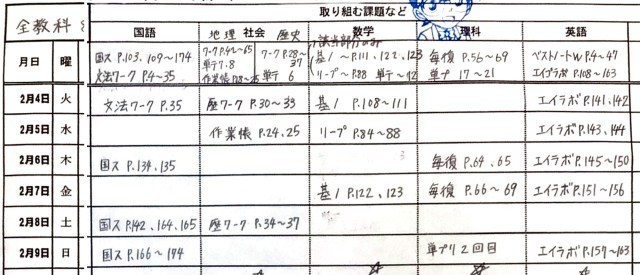 取り組む課題など
全教科
国語 地理 社会 歴史 数学 理科 英語
月日 曜
国ス P.103、109〜174
文法ワーク P.4〜35
ワークP.42〜65
単テ7・8
作業帳P.18〜25
ワークP.28〜37
単テ 6
該当部分のみ
基ノ 〜P.111、122、123
リープ 〜P.88 単テ〜12
毎復 P.56〜69
単プ 17〜21
ベストノートW P.4〜47
エイゴラボ P.108〜163
2月4日 火 文法ワーク P.35 歴ワーク P.30〜33 基ノ P.108〜111 エイラボ P.141、142
2月5日 水 作業帳 P.24、25 リープ P.84〜88 エイラボ P.143、144
2月6日 木 国ス P.134、135 毎復 P.64、65 エイラボ P.145〜150
2月7日 金 基ノ P.122、123 毎復 P.66〜69 エイラボ P.151〜156
2月8日 土 国ス P.142、164、165 歴ワーク P.34〜37
2月9日 日 国ス P.166〜174 単プリ 2回目 エイラボ P.157〜163